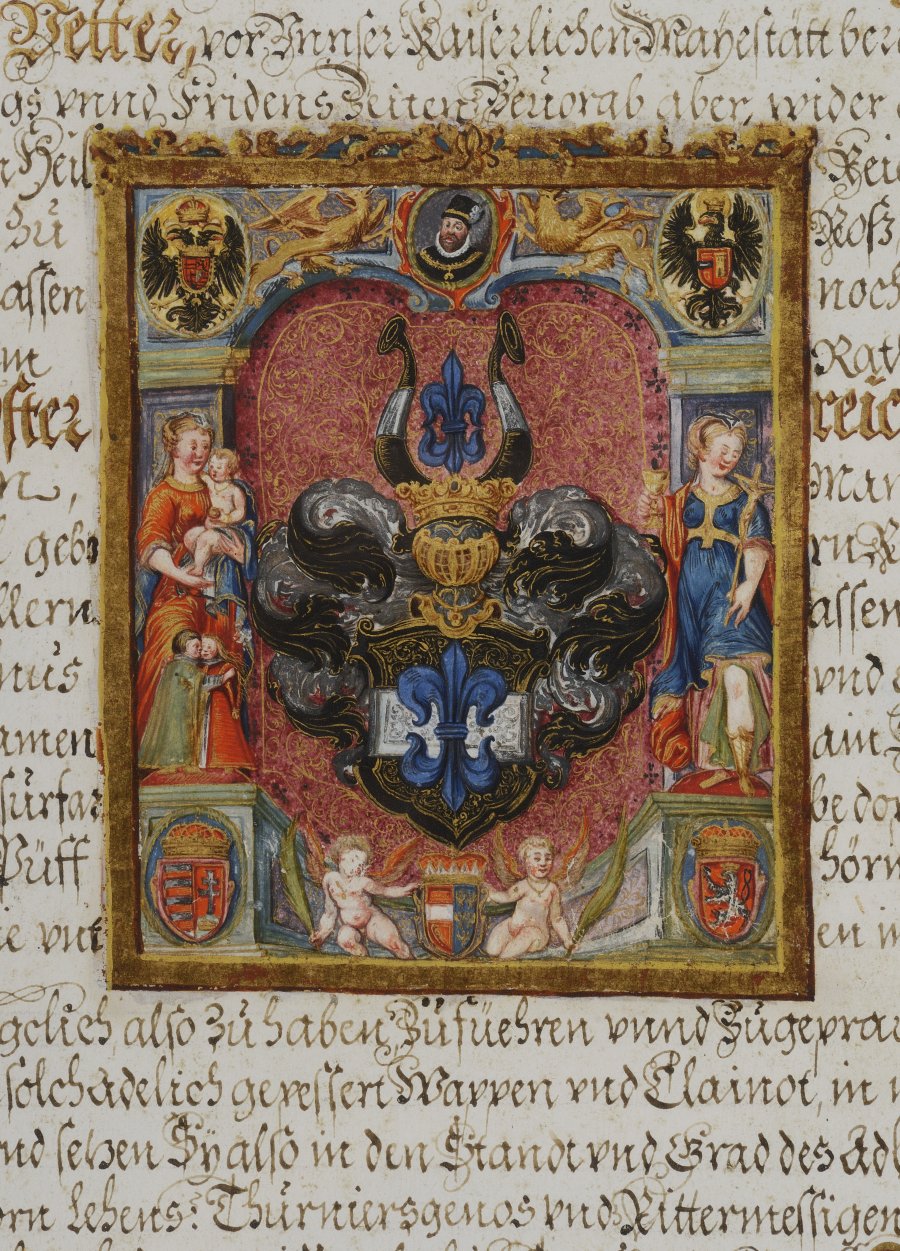 Vetter, vor Innser Kaiserlichen Mayestätt ber
gs vnnd Fridens Zeiten Beuorab aber, wider
Heil Reic
zu Roß,
assen noch
m Rath
ster reic
n, Man
geb rn R
llern assen
nus vnd
amen ain
fürfa be dor
Püff hörn
ie vnt en in
gclich also zu haben, Zufüehren vnnd Zugeprau
solch Adelich gepessert Wappen vnd Clainot, in
nd sezen Sy also in den Standt vnd Grad des Adl
rn Lehens: Thurniersgenos vnd Rittermessigen